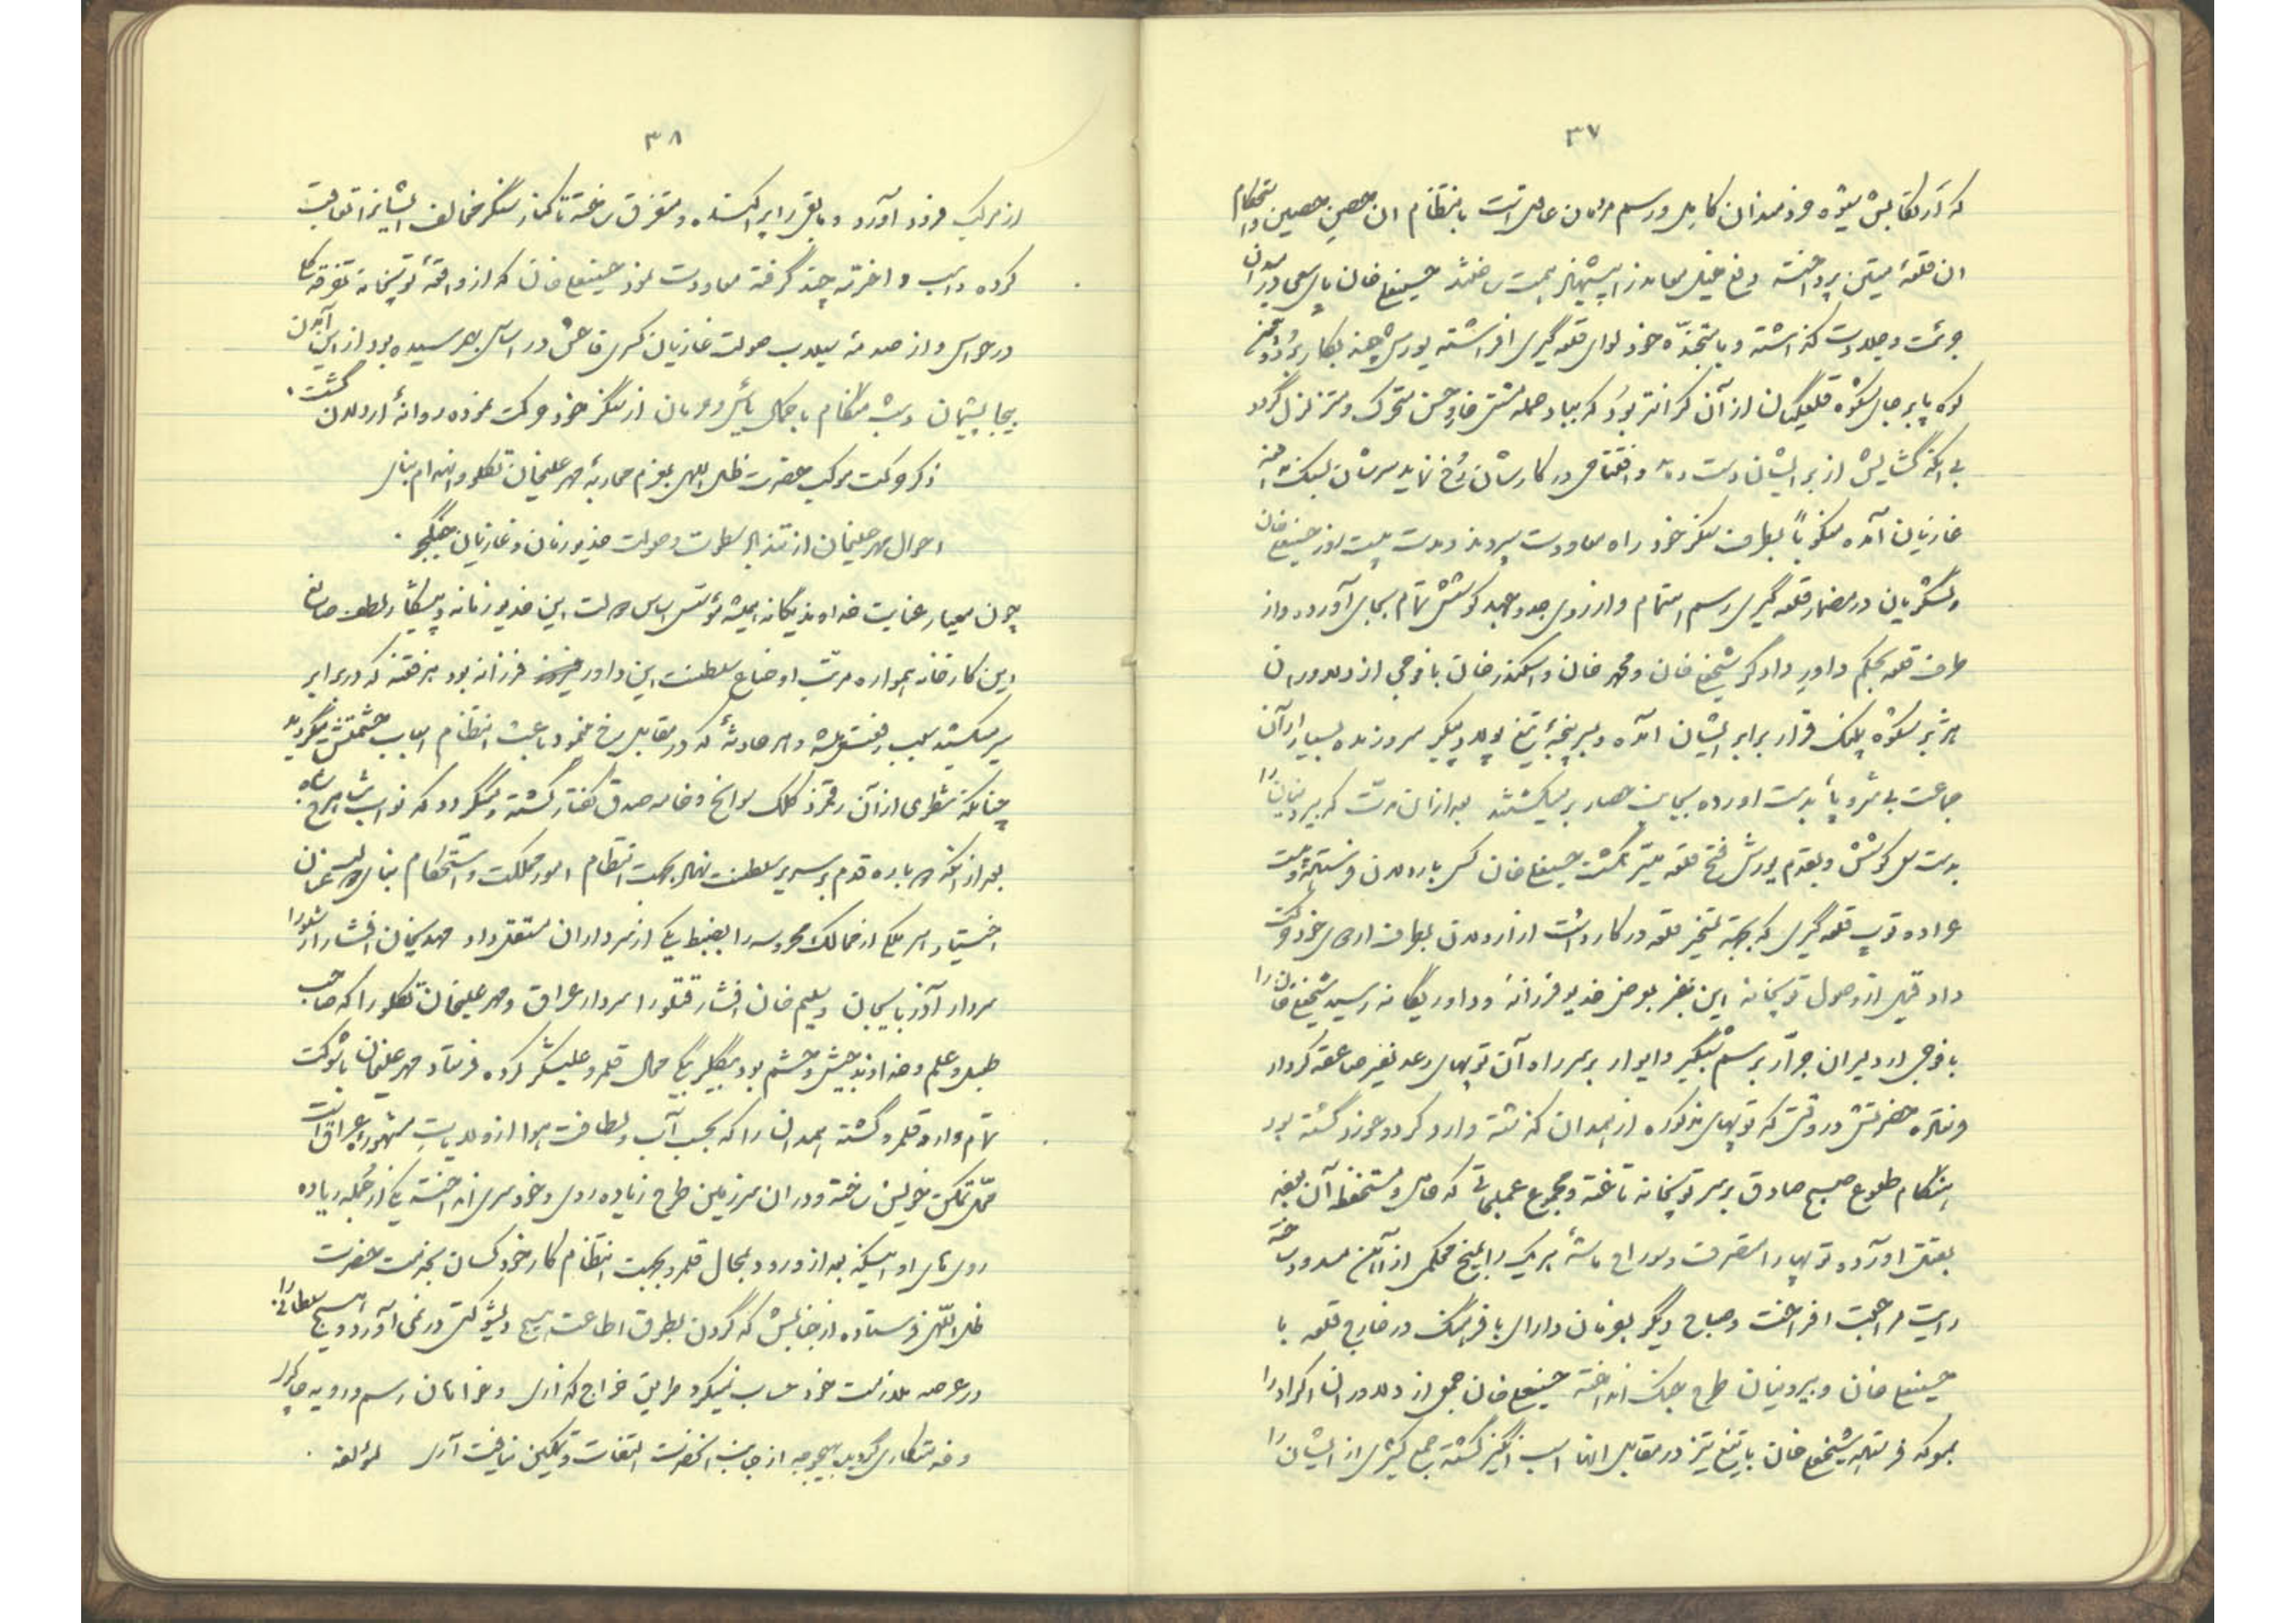 ۳۷
ان قلعهٔ متین پرداخته دفع خیل معاند را پیشنهاد همت ساختند حسینعلی خان پای سعی در میدان
جرئت و جلادت گذاشته و باستخذه خود لوای قلعه گیری افراشته یورش چند بکار برد
کوه پابرجای شکوه قلعگیان از آن گرانتر بود که بباد حمله مشتی خار و خس متحرک و متزلزل گردد
بی آنکه گشایش از برایشان دست دهد و افتتاحی در کارشان رخ نماید سرشان بسنگ
غازیان آمده منکوباً بطرف سنگر خود راه معاودت سپردند و مدت بیست روز حسینعلی خان
و لشگریان در مضمار قلعه گیری رسم اهتمام و از روی جد و جهد کوشش تمام بجای آوردند و از
طرف قلعه بحکم داور دادگر شیخعلی خان و محمد خان و اسکندر خان با فوجی از دلاوران
هژبر شکوه پلنگ قرار برابر ایشان آمده و بسرپنجهٔ تیغ پولاد پیکر هر روزه بسیار از آن
جماعت بی سر و پا بدست آورده بیاسای حصار بر میکشیدند بعد از آن مدت که بیرونیان را
بدست سعی کوشش و بقدم یورش فتح قلعه میسر نگشت حسینعلی خان کس باردلان فرستاده
عراده توپ قلعه گیری که بجهة تسخیر قلعه در کار داشت از اردلان بطرف اردوی خود حرکت
داد قبل از وصول توپخانه این خبر بعرض خدیو فرزانه و داور یگانه رسید شیخعلی خان را
با فوجی از دلیران جرّار برسم شبگیر و ایوار بر سر راه آن توپهای رعد نفیر صاعقه کردار
فرستاده حضرتش در وقتی که توپهای مذکوره از همدان گذشته وارد گردو خورد گشته بود
هنگام طلوع صبح صادق بر سر توپخانه تاخته و مجموع عملجاتی که حامل و مستحفظ آن بودند
بقتل آورده توپها را متصرف و سوراخ ماشهٔ هر یک را بمیخ محکمی از آهن مسدود ساخته
رایت مراجعت افراخت و صباح دیگر بفرمان دارای با فرهنگ در خارج قلعه با
حسینعلی خان و بیرونیان طرح جنگ انداخته حسینعلی خان جمعی از دلاوران اکراد را
بمعرکه فرستاده شیخعلی خان با تیغ تیز در مقابل آنها اسب انگیز گشته جمع کثیری از ایشان را
۳۸
از مرکب فرود آورد و باقی را پراکنده و متفرق ساخته تا کنار سنگر مخالف ایشانرا تعاقب
کرده و اسب و اخرته چند گرفته معاودت نمود حسینعلی خان که از واقعهٔ توپخانه تفرقه
در حواس و از صدمهٔ سیلاب صولت غازیان کسری فاحش در اساس بهمرسیده بود از این آمدن
بیجا پشیمان و شب هنگام با کمال یأس و حرمان از سنگر خود حرکت نموده روانهٔ اردلان گشت
ذکر حرکت موکب حضرت ظل اللهی بعزم محاربهٔ مهر علیخان تکلو و انهدام بنای
احوال مهر علیخان از تندباد سطوت و صولت خدیو زمان و غازیان جنگجو
چون معمار عنایت خداوند یگانه همیشه مؤسس اساس دولت این خدیو زمانه و پیشکار لطف صانع
این کارخانه همواره مرتب اوضاع سلطنت این داور فرزانه بود هر فتنه که در برابر
سر میکشید سبب رفعتش و هر حادثهٔ که در مقابل رخ مینمود باعث انتظام اسباب حشمتش میگردید
چنانکه شطری از آن رقمزد کلک سوانح و خامه صدق گفتار گشته و میگردد که نواب شاهرخ شاه
بعد از آنکه دوباره قدم بر سریر سلطنت نهاد بجهت انتظام امور مملکت و استحکام بنای
اختیار هر یکی از ممالک محروسه را بضبط یکی از سرداران مستقل داد مهدیخان افشار را
سردار آذربایجان و سلیم خان افشار قتلو را سردار عراق و مهر علیخان تکلو را که صاحب
طبل و علم و خداوند جیش و حشم بود بیگلربیگی محال قلمرو علیشکر کرده فرستاد مهر علیخان با شوکت
تمام وارد قلمرو گشته همدان را که بحسب آب و لطافت هوا از ولایات مشهوره عراق است
محل تمکین خویش ساخته و در آن سرزمین طرح زیاده روی و خودسری انداخته یکی از جمله زیاده
روی های او اینکه بعد از ورود بمحال قلمرو بجهت انتظام کار خود کسان بخدمت حضرت
ظل اللهی فرستاده از جنابش که گردن بطوق اطاعت هیچ ذیشوکتی در نمی آورد و هیچ سلطانی را
در عرصه ملازمت خود حساب نمیکرد طریق خراج گذاری و خواهان رسم و رویه چاکری
و خدمتکاری گردید بهیچوجه از جانب آنحضرت التفات و تمکین نیافت آری لمؤلفه